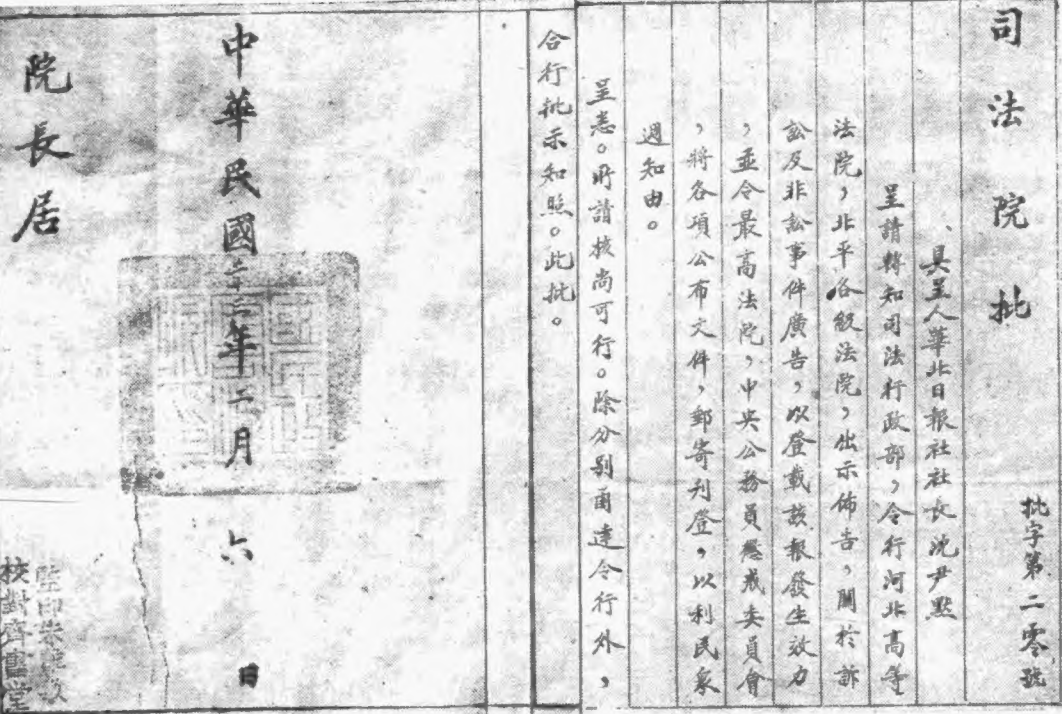 司法院批
批字第二零號
具呈人華北日報社社長沈尹默
呈請轉知司法行政部,令行河北高等
法院,北平各級法院,出示佈告,關於訴
訟及非訟事件廣告,以登載該報發生效力
,並令最高法院,中央公務員懲戒委員會
,將各項公布文件,郵寄刊登,以利民衆
週知由。
呈悉。所請核尚可行。除分別函達令行外,
合行批示知照。此批。
中華民國二十二年二月六日
院長居
監印朱
校對齊